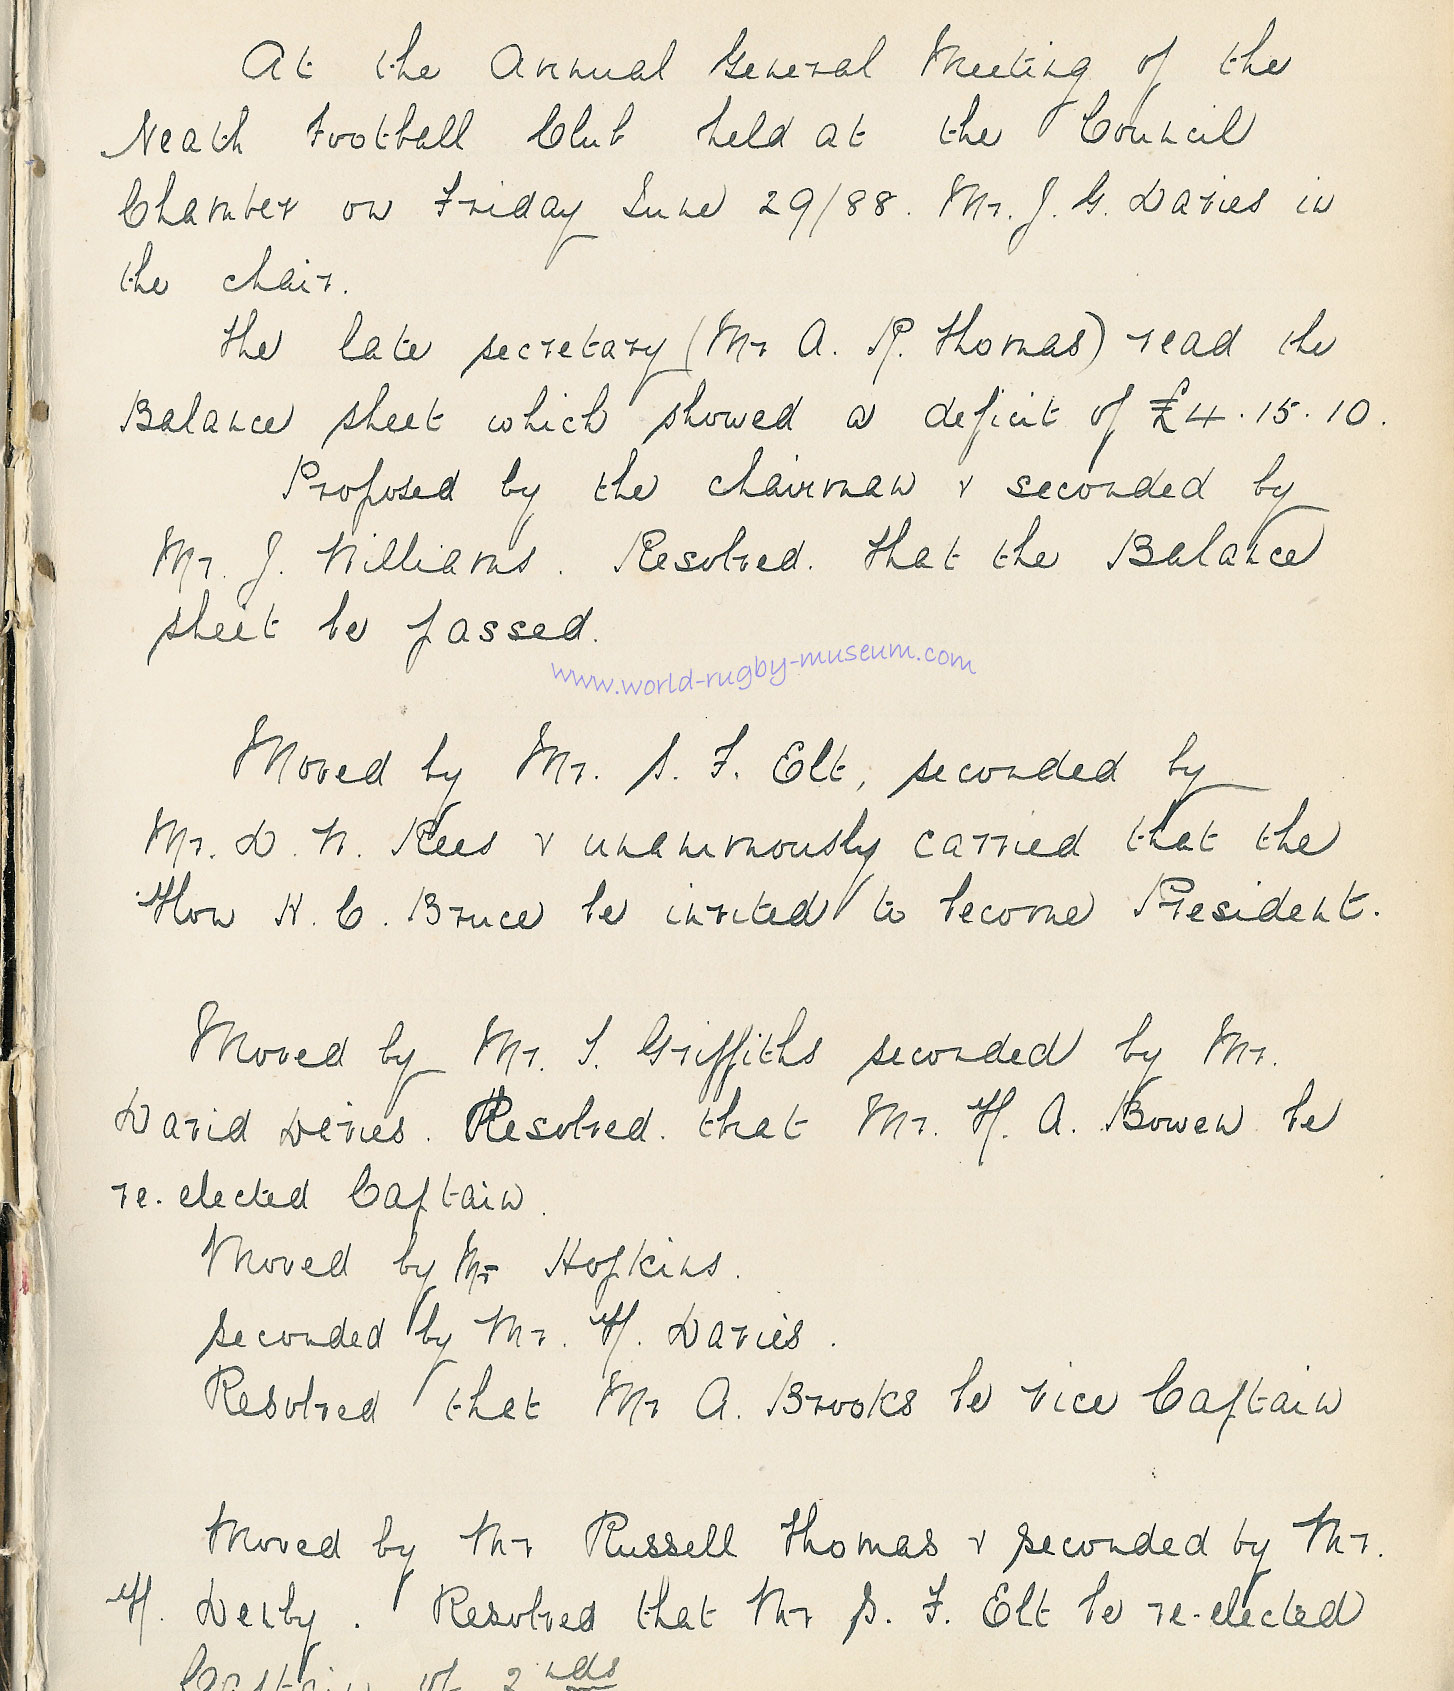 At the Annual General Meeting of the
Neath Football Club held at the Council
Chamber on Friday June 29/88. Mr. J. G. Davies in
the chair.
The late secretary (Mr A. R. Thomas) read the
Balance sheet which showed a deficit of £4.15.10.
Proposed by the chairman & seconded by
Mr. J. Williams. Resolved. that the Balance
sheet be passed.
www.world-rugby-museum.com
Moved by Mr. S. F. Elt, seconded by
Mr. D. W. Rees & unanimously carried that the
Hon H. C. Bruce be invited to become President.
Moved by Mr. S. Griffiths seconded by Mr.
David Davies. Resolved. that Mr. H. A. Bowen be
re-elected Captain.
Moved by Mr Hopkins.
seconded by Mr. H. Davies.
Resolved that Mr A. Brooks be vice Captain
Moved by Mr Russell Thomas & seconded by Mr.
H. Denby. Resolved that Mr S. F. Elt be re-elected
Captain of 2nds